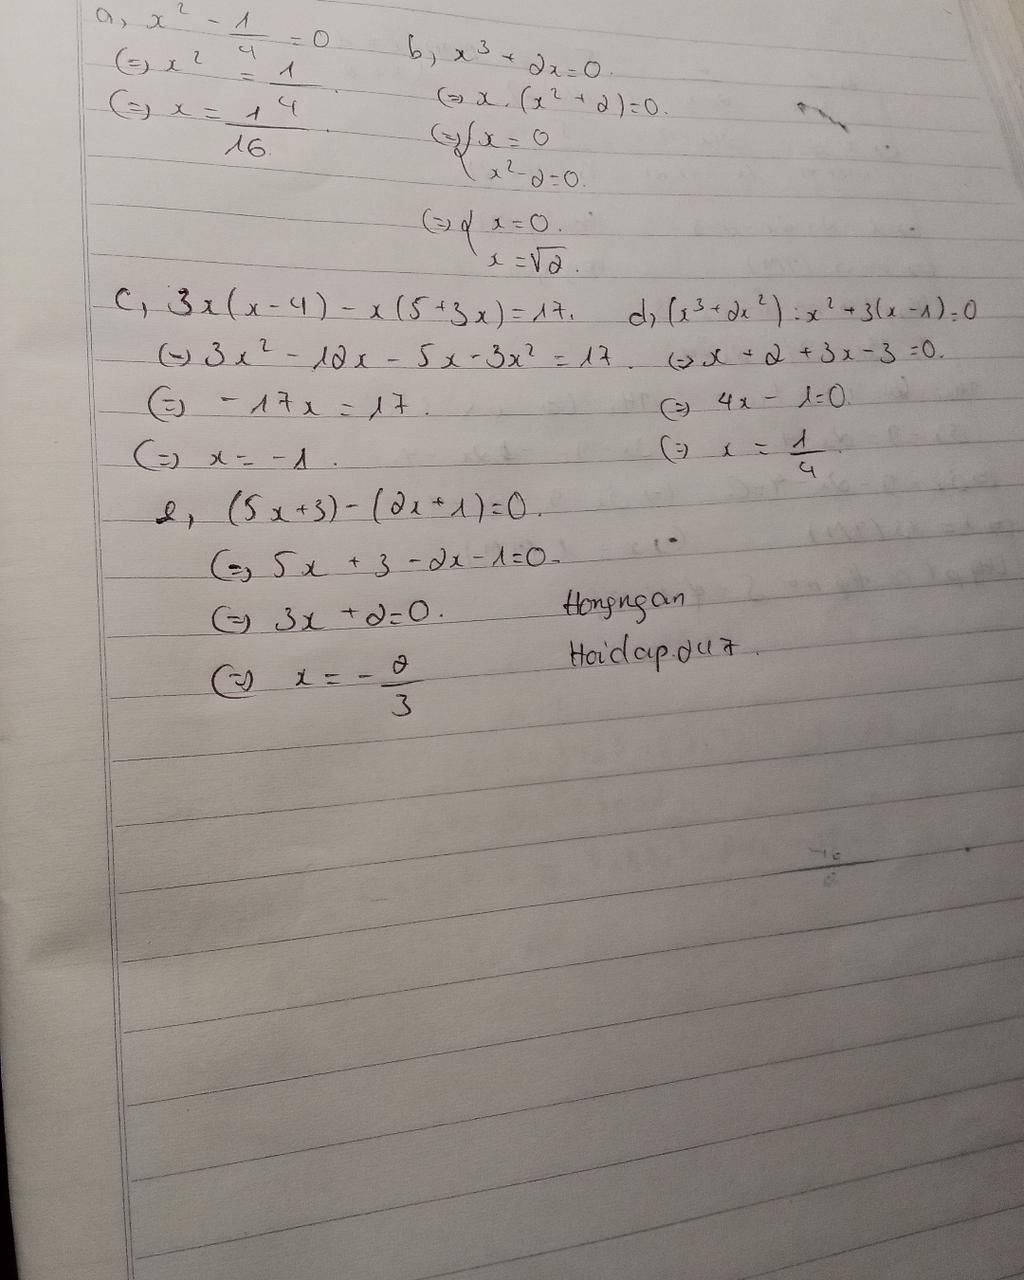 a, x² - 1/4 = 0
(=) x² = 1/4
(=) x = 1/16.
b, x³ + 2x = 0.
(=) x. (x² + 2) = 0.
(=) { x = 0
x² - 2 = 0.
(=) { x = 0.
x = √2.
c, 3x(x-4) - x(5+3x) = 17.
(=) 3x² - 12x - 5x - 3x² = 17.
(=) -17x = 17.
(=) x = -1.
d, (x³ + 2x²) : x² + 3(x-1) = 0
(=) x + 2 + 3x - 3 = 0.
(=) 4x - 1 = 0.
(=) x = 1/4.
e, (5x+3) - (2x+1) = 0.
(=) 5x + 3 - 2x - 1 = 0.
(=) 3x + 2 = 0.
(=) x = - 2/3
Hongngan
Hoidap247.